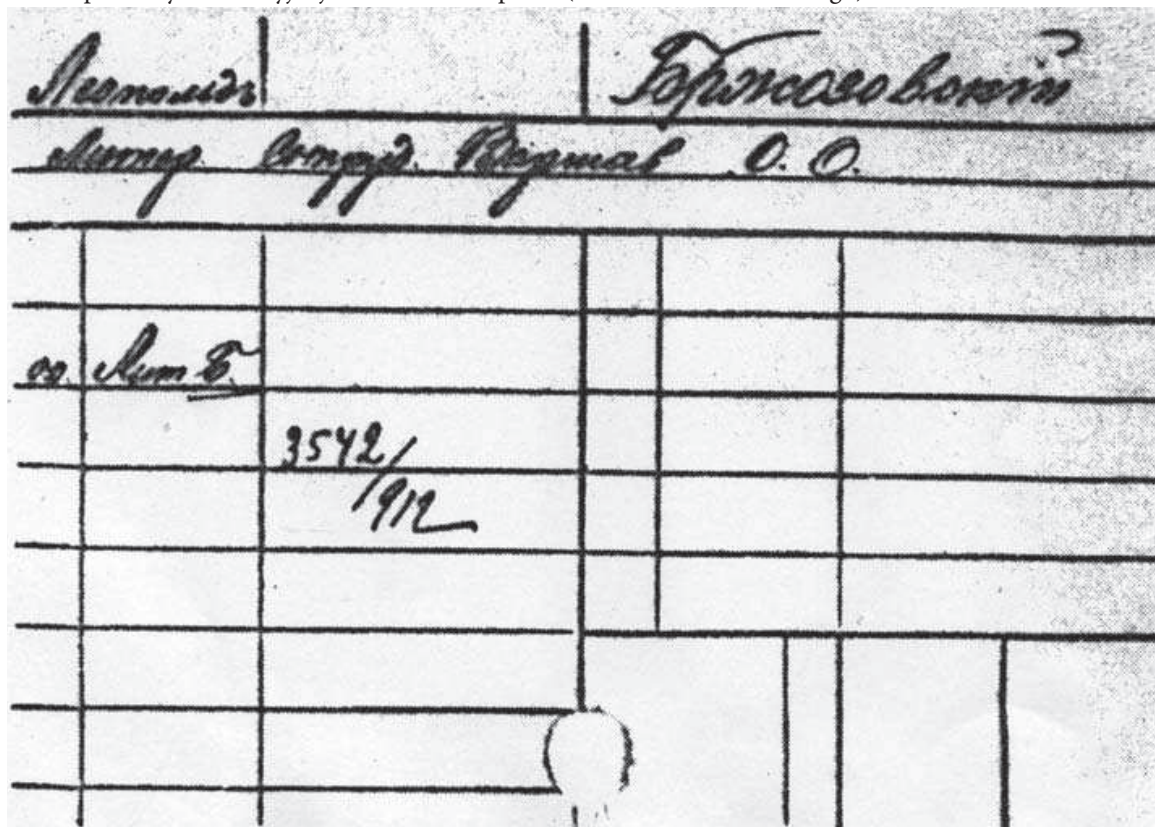 Леопольдъ Бржозовскій
Литер. Сотруд. Варшав О. О.
оо. Лит Б.
3542/
912